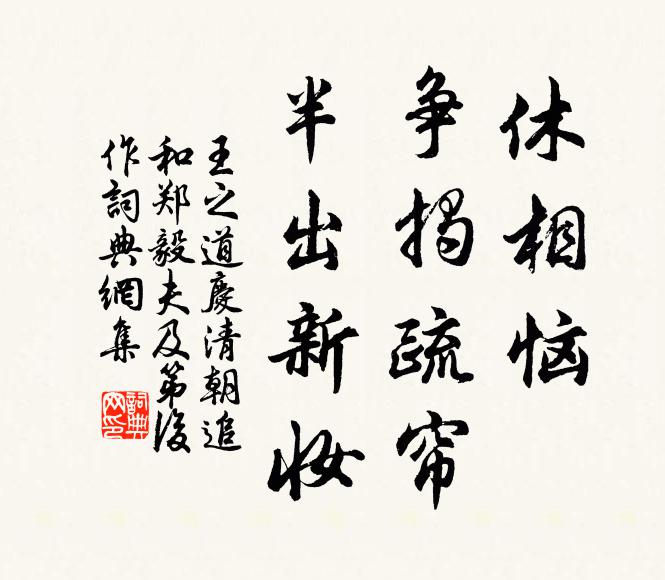 休相恼
争揭疏帘
半出新妆
王之道慶清朝追
和郑毅夫及第後
作詞典網集
詞典
网印